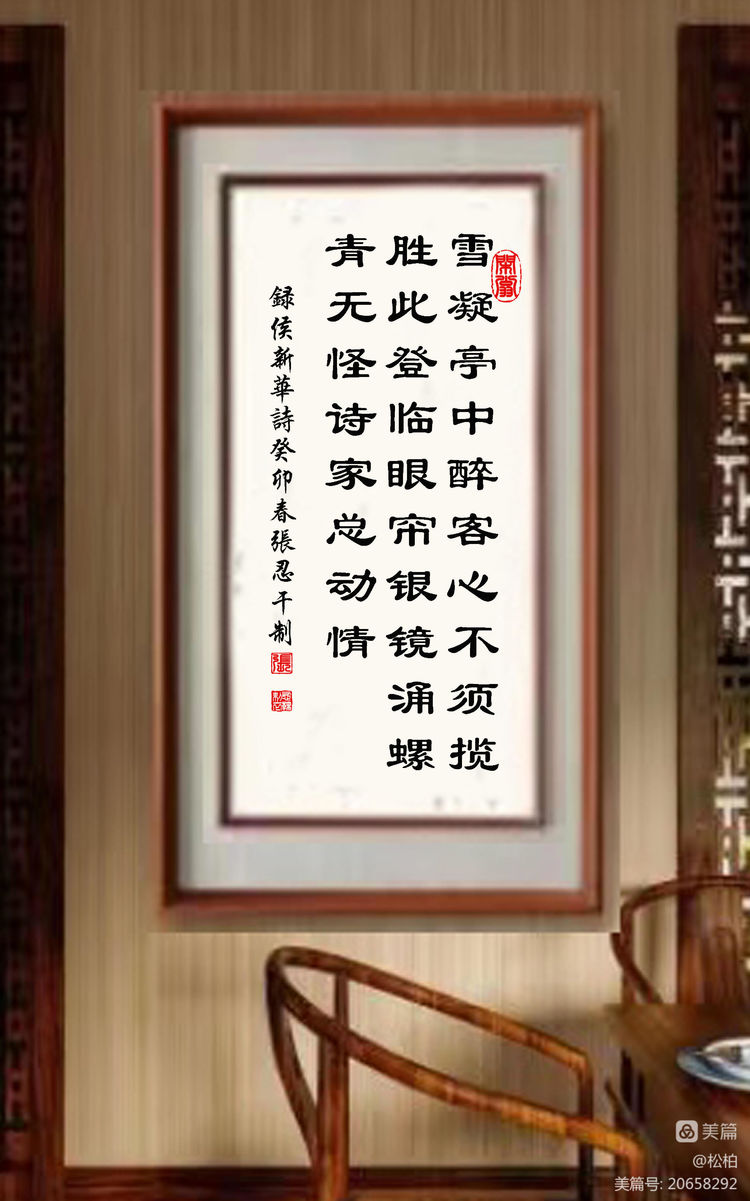 雪凝亭中醉客心不须揽
胜此登临眼帘银镜涌螺
青无怪诗家总动情
録侯新華詩癸卯春張忍干制
張
美篇
@松柏
美篇号: 20658292